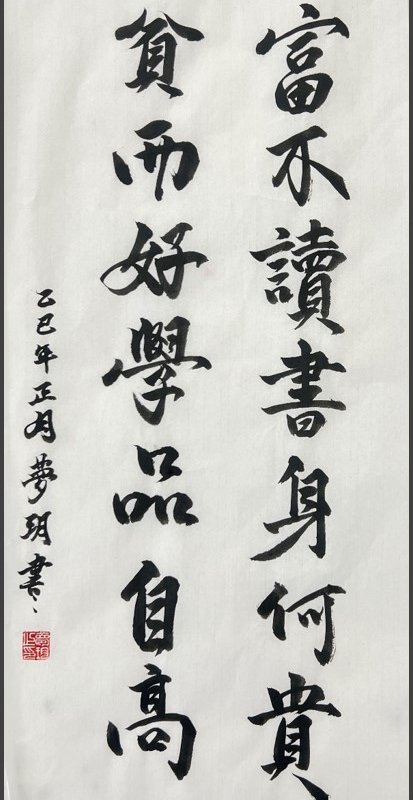 富不讀書身何貴
貧而好學品自高
乙巳年正月夢玥書